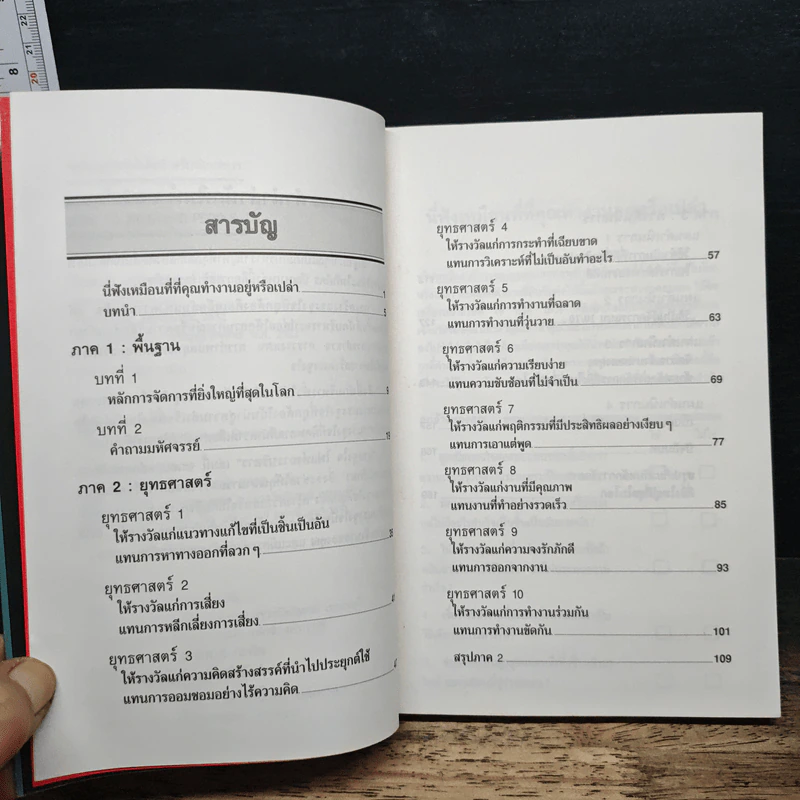 สารบัญ
นี่ฟังเหมือนที่ที่คุณทำงานอยู่หรือเปล่า 1
บทนำ 5
ภาค 1 : พื้นฐาน
บทที่ 1
หลักการจัดการที่ยิ่งใหญ่ที่สุดในโลก 9
บทที่ 2
คำถามมหัศจรรย์
ภาค 2 : ยุทธศาสตร์
ยุทธศาสตร์ 1
ให้รางวัลแก่แนวทางแก้ไขที่เป็นชิ้นเป็นอัน
แทนการหาทางออกที่ลวก ๆ
ยุทธศาสตร์ 2
ให้รางวัลแก่การเสี่ยง
แทนการหลีกเลี่ยงการเสี่ยง
ยุทธศาสตร์ 3
ให้รางวัลแก่ความคิดสร้างสรรค์ที่นำไปประยุกต์ใช้
แทนการออมชอมอย่างไร้ความคิด
ยุทธศาสตร์ 4
ให้รางวัลแก่การกระทำที่เฉียบขาด
แทนการวิเคราะห์ที่ไม่เป็นอันทำอะไร 57
ยุทธศาสตร์ 5
ให้รางวัลแก่การทำงานที่ฉลาด
แทนการทำงานที่วุ่นวาย 63
ยุทธศาสตร์ 6
ให้รางวัลแก่ความเรียบง่าย
แทนความซับซ้อนที่ไม่จำเป็น 69
ยุทธศาสตร์ 7
ให้รางวัลแก่พฤติกรรมที่มีประสิทธิผลอย่างเงียบ ๆ
แทนการเอาแต่พูด 77
ยุทธศาสตร์ 8
ให้รางวัลแก่งานที่มีคุณภาพ
แทนงานที่ทำอย่างรวดเร็ว 85
ยุทธศาสตร์ 9
ให้รางวัลแก่ความจงรักภักดี
แทนการออกจากงาน 93
ยุทธศาสตร์ 10
ให้รางวัลแก่การทำงานร่วมกัน
แทนการทำงานขัดกัน 101
สรุปภาค 2 109
8
22
21
20